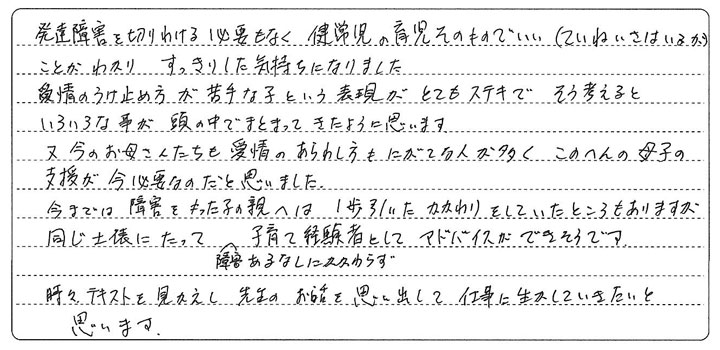 発達障害を切りわける必要もなく 健常児の育児そのものでいい (ていねいさはいるが)
ことがわかり すっきりした気持ちになりました
愛情のうけ止め方が苦手な子という表現がとてもステキで そう考えると
いろいろな事が 頭の中でまとまってきたように思います
又 今のお母さんたちも 愛情のあらわし方もにがてな人が多く このへんの母子の
支援が今必要なのだと思いました.
今までは 障害をもった子の親へは 1歩引いたかかわりをしていたところもありますが
同じ土俵にたって 子育て経験者として アドバイスができそうです.
障害あるなしにかかわらず
時々テキストを見かえし 先生のお話を思い出して 仕事に生かしていきたいと
思います.